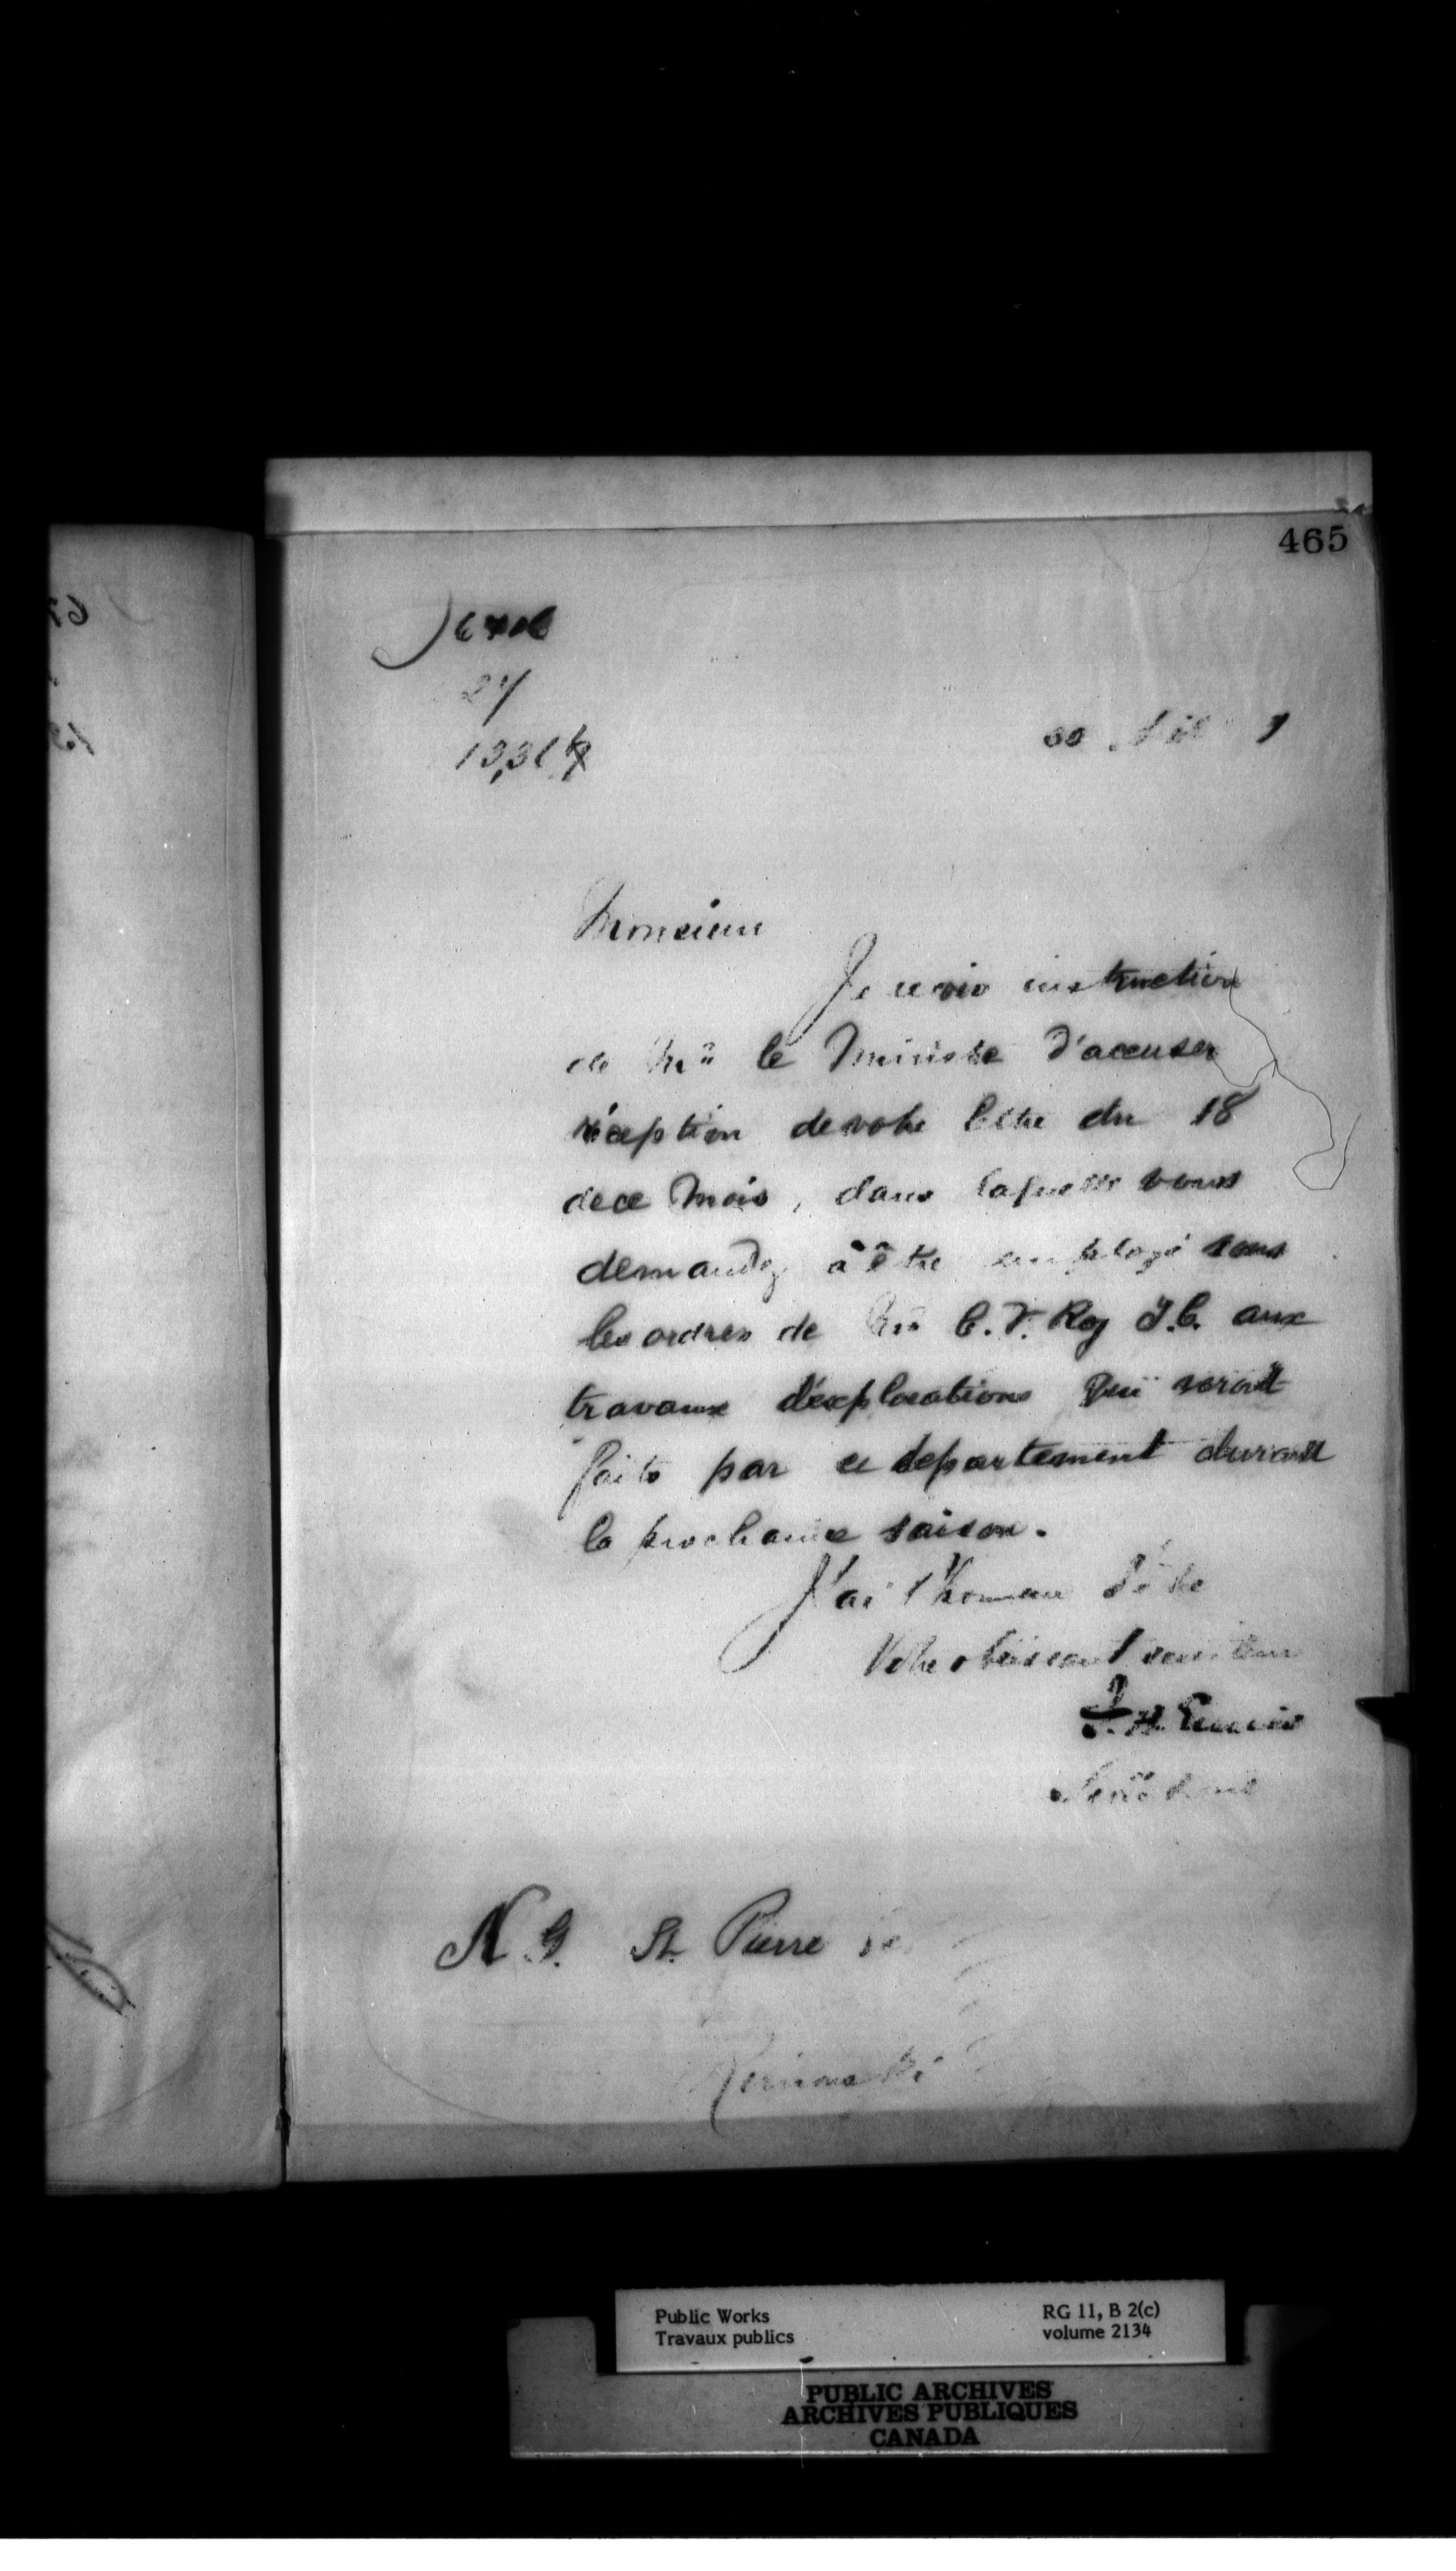 465
Monsieur
Je reçois instruction
de Mr le Ministre d'accuser
réception de votre lettre du 18
de ce mois, dans laquelle vous
demandez à être employé sous
les ordres de Mr C.V. Roy I.C. aux
travaux d'explorations qui seront
faits par ce département durant
la prochaine saison.
J'ai l'honneur d'être
Votre obéissant serviteur
F. H. Ennis
Secrétaire
N. G. St. Pierre
Rimouski
Public Works
Travaux publics
RG 11, B 2(c)
volume 2134
PUBLIC ARCHIVES
ARCHIVES PUBLIQUES
CANADA